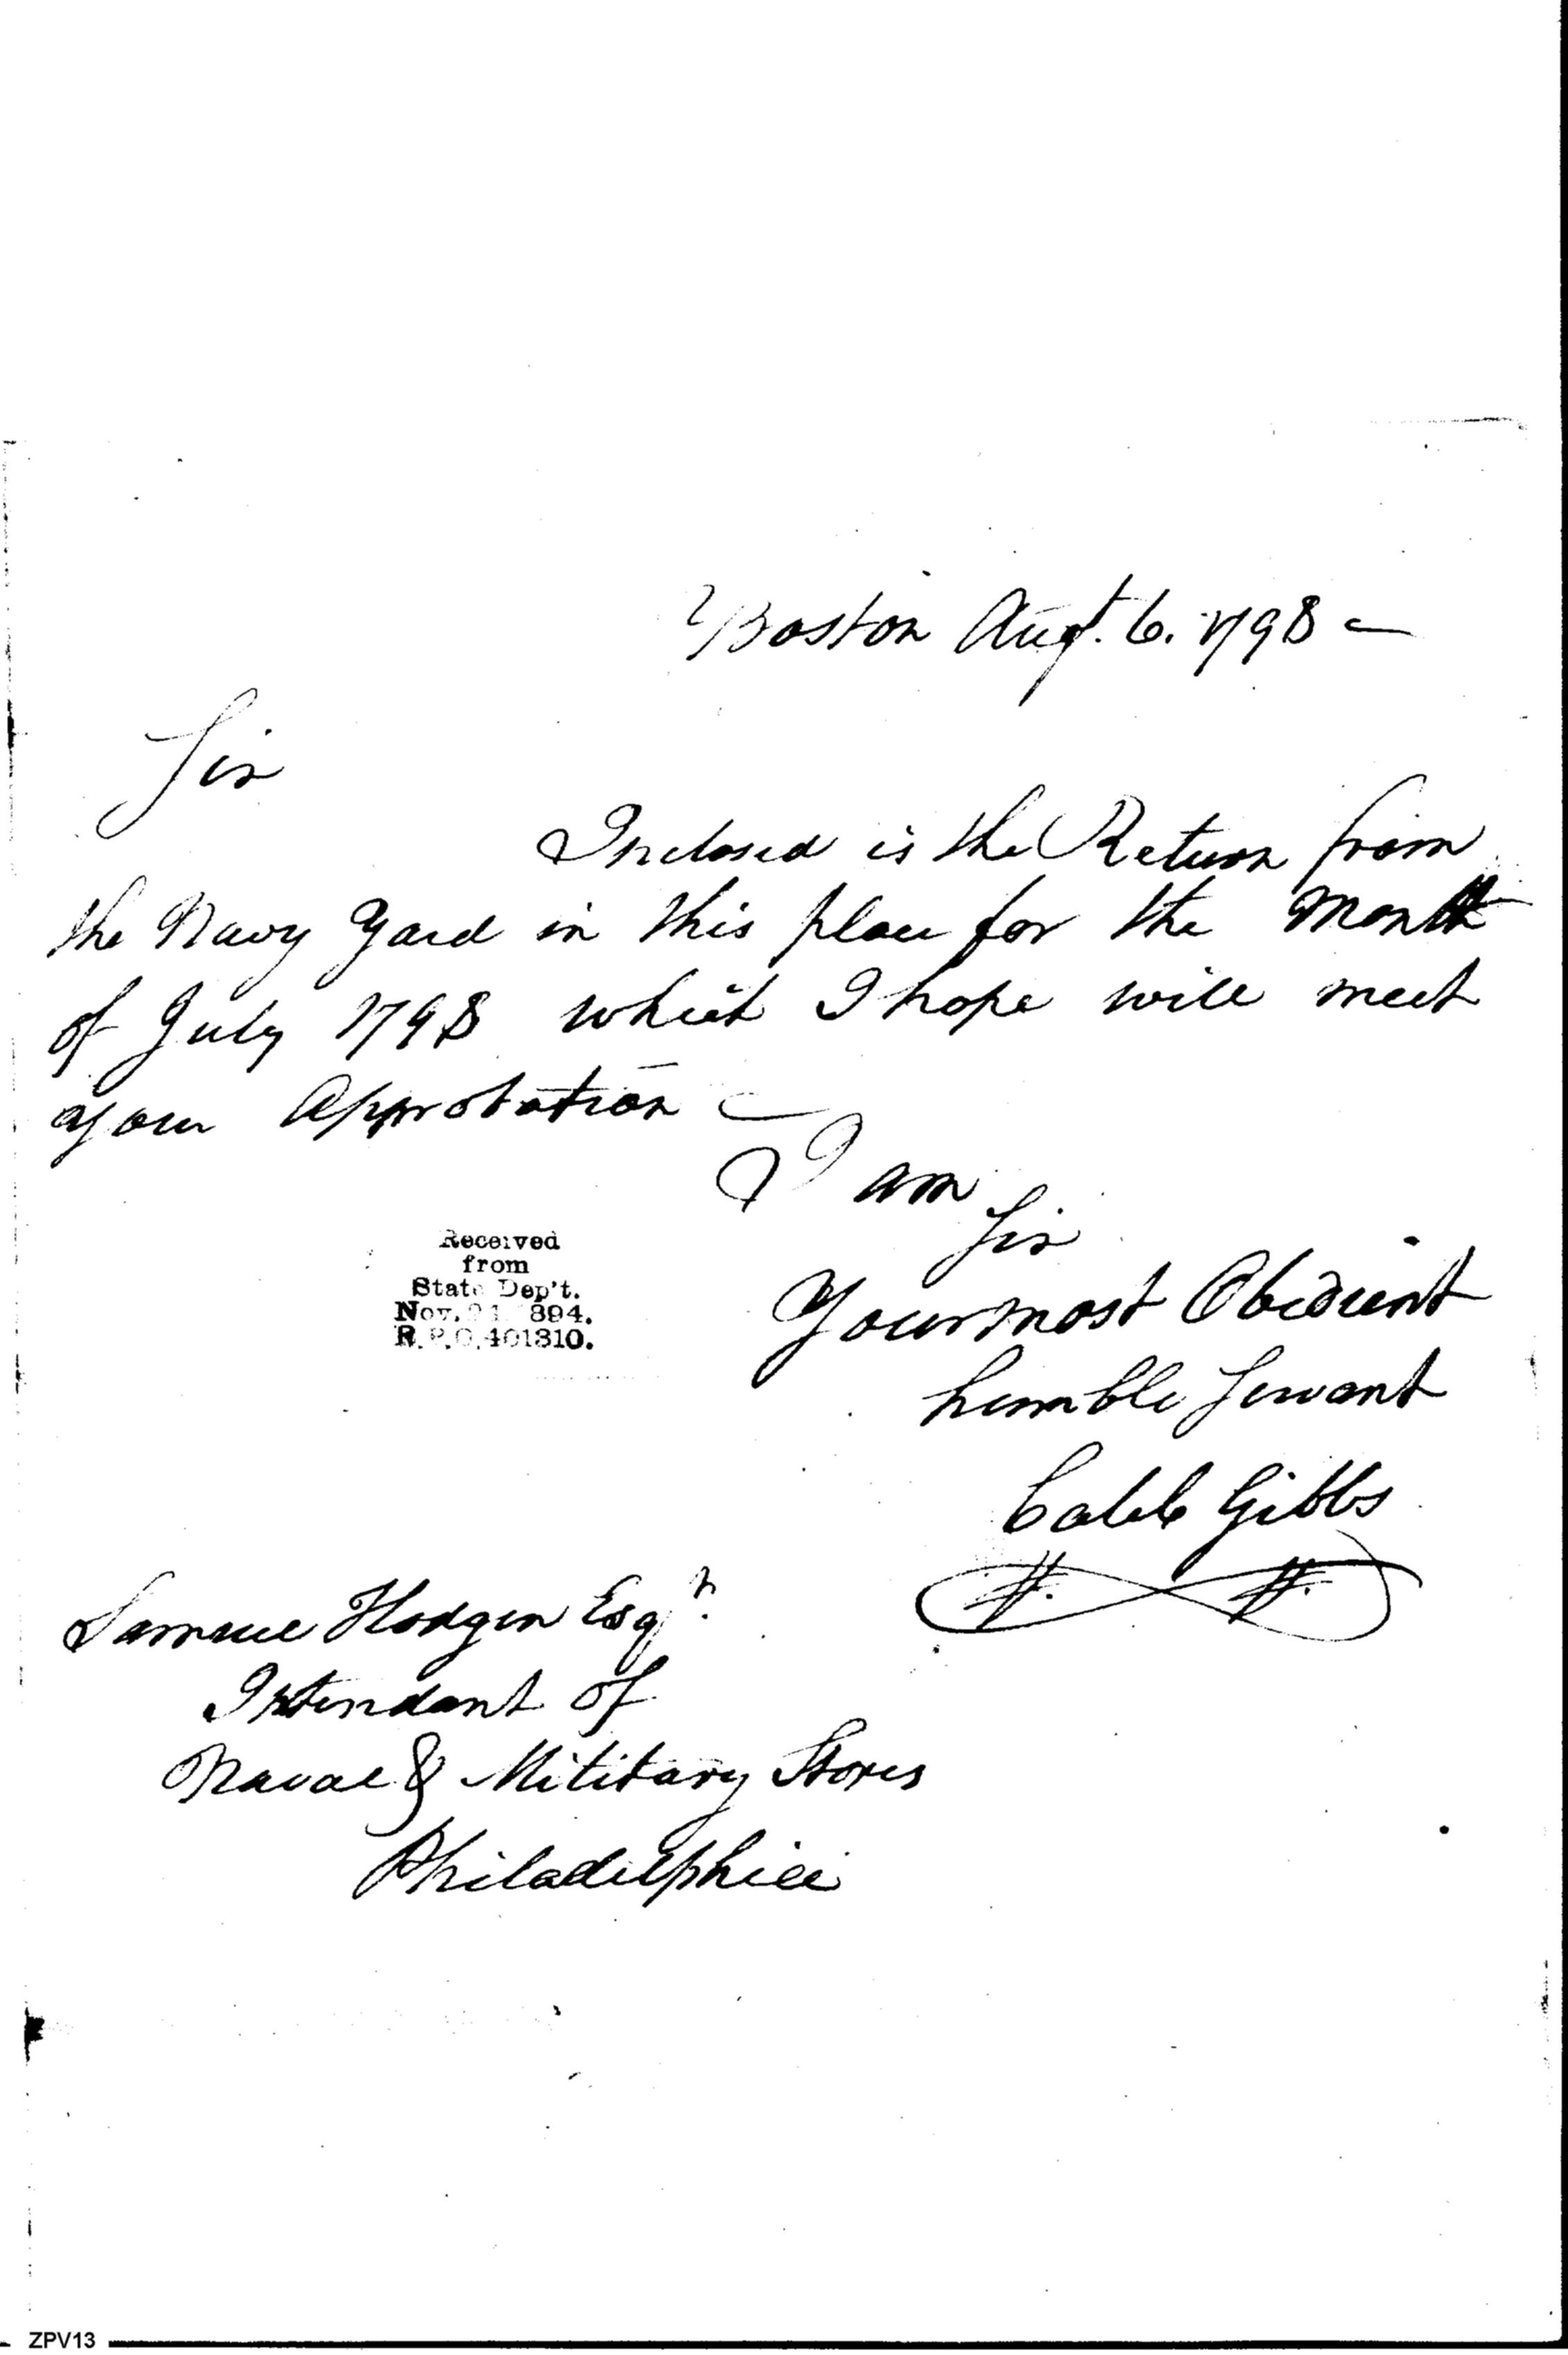 Boston Augt. 6. 1798 —
Sir
Inclosed is the Return from
the Navy Yard in this place for the Month
of July 1798 which I hope will meet
your Approbation —
I am
Sir
Your most Obedient
humble Servant
Caleb Gibbs
Received
from
State Dep't.
Nov. 21 894.
R.P.O. 401310.
Samuel Hodgdon Esqr.
Intendant of
Naval & Military Stores
Philadelphia
ZPV13